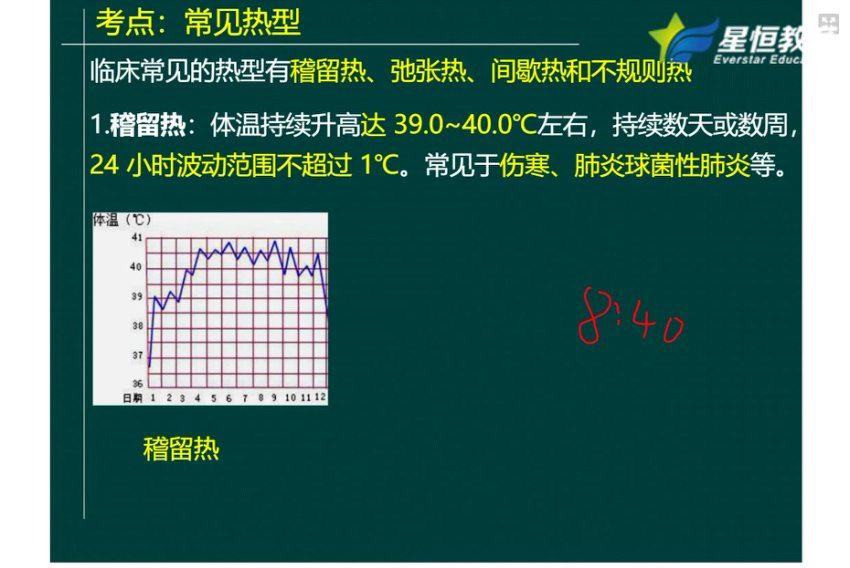 考点：常见热型
星恒教育
Everstar Educa
临床常见的热型有稽留热、弛张热、间歇热和不规则热
1.稽留热：体温持续升高达 39.0~40.0℃左右，持续数天或数周，
24 小时波动范围不超过 1℃。常见于伤寒、肺炎球菌性肺炎等。
体温（℃）
41
40
39
38
37
36
日期 1 2 3 4 5 6 7 8 9 10 11 12
8:40
稽留热